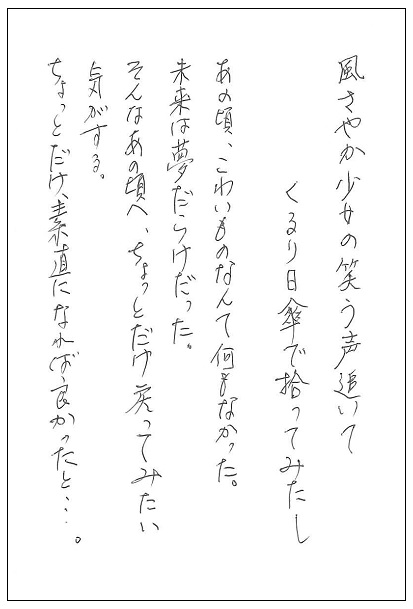 風さやか少女の笑う声追いて
くるり日傘で拾ってみたし
あの頃、こわいものなんて何もなかった。
未来は夢だらけだった。
そんなあの頃へ、ちょっとだけ戻ってみたい
気がする。
ちょっとだけ、素直になれば良かったと…。